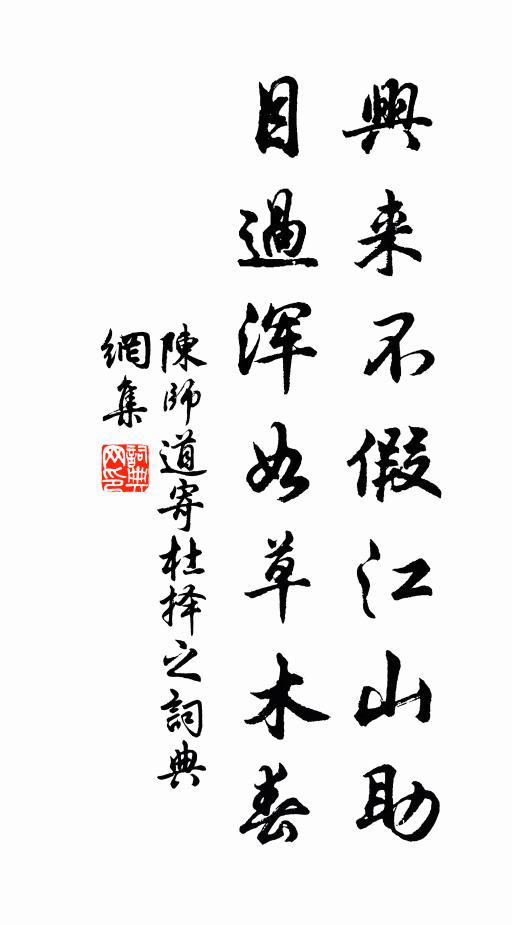 興来不假江山助
目過浑如草木春
陳師道寄杜择之詞典
網集
詞典網印